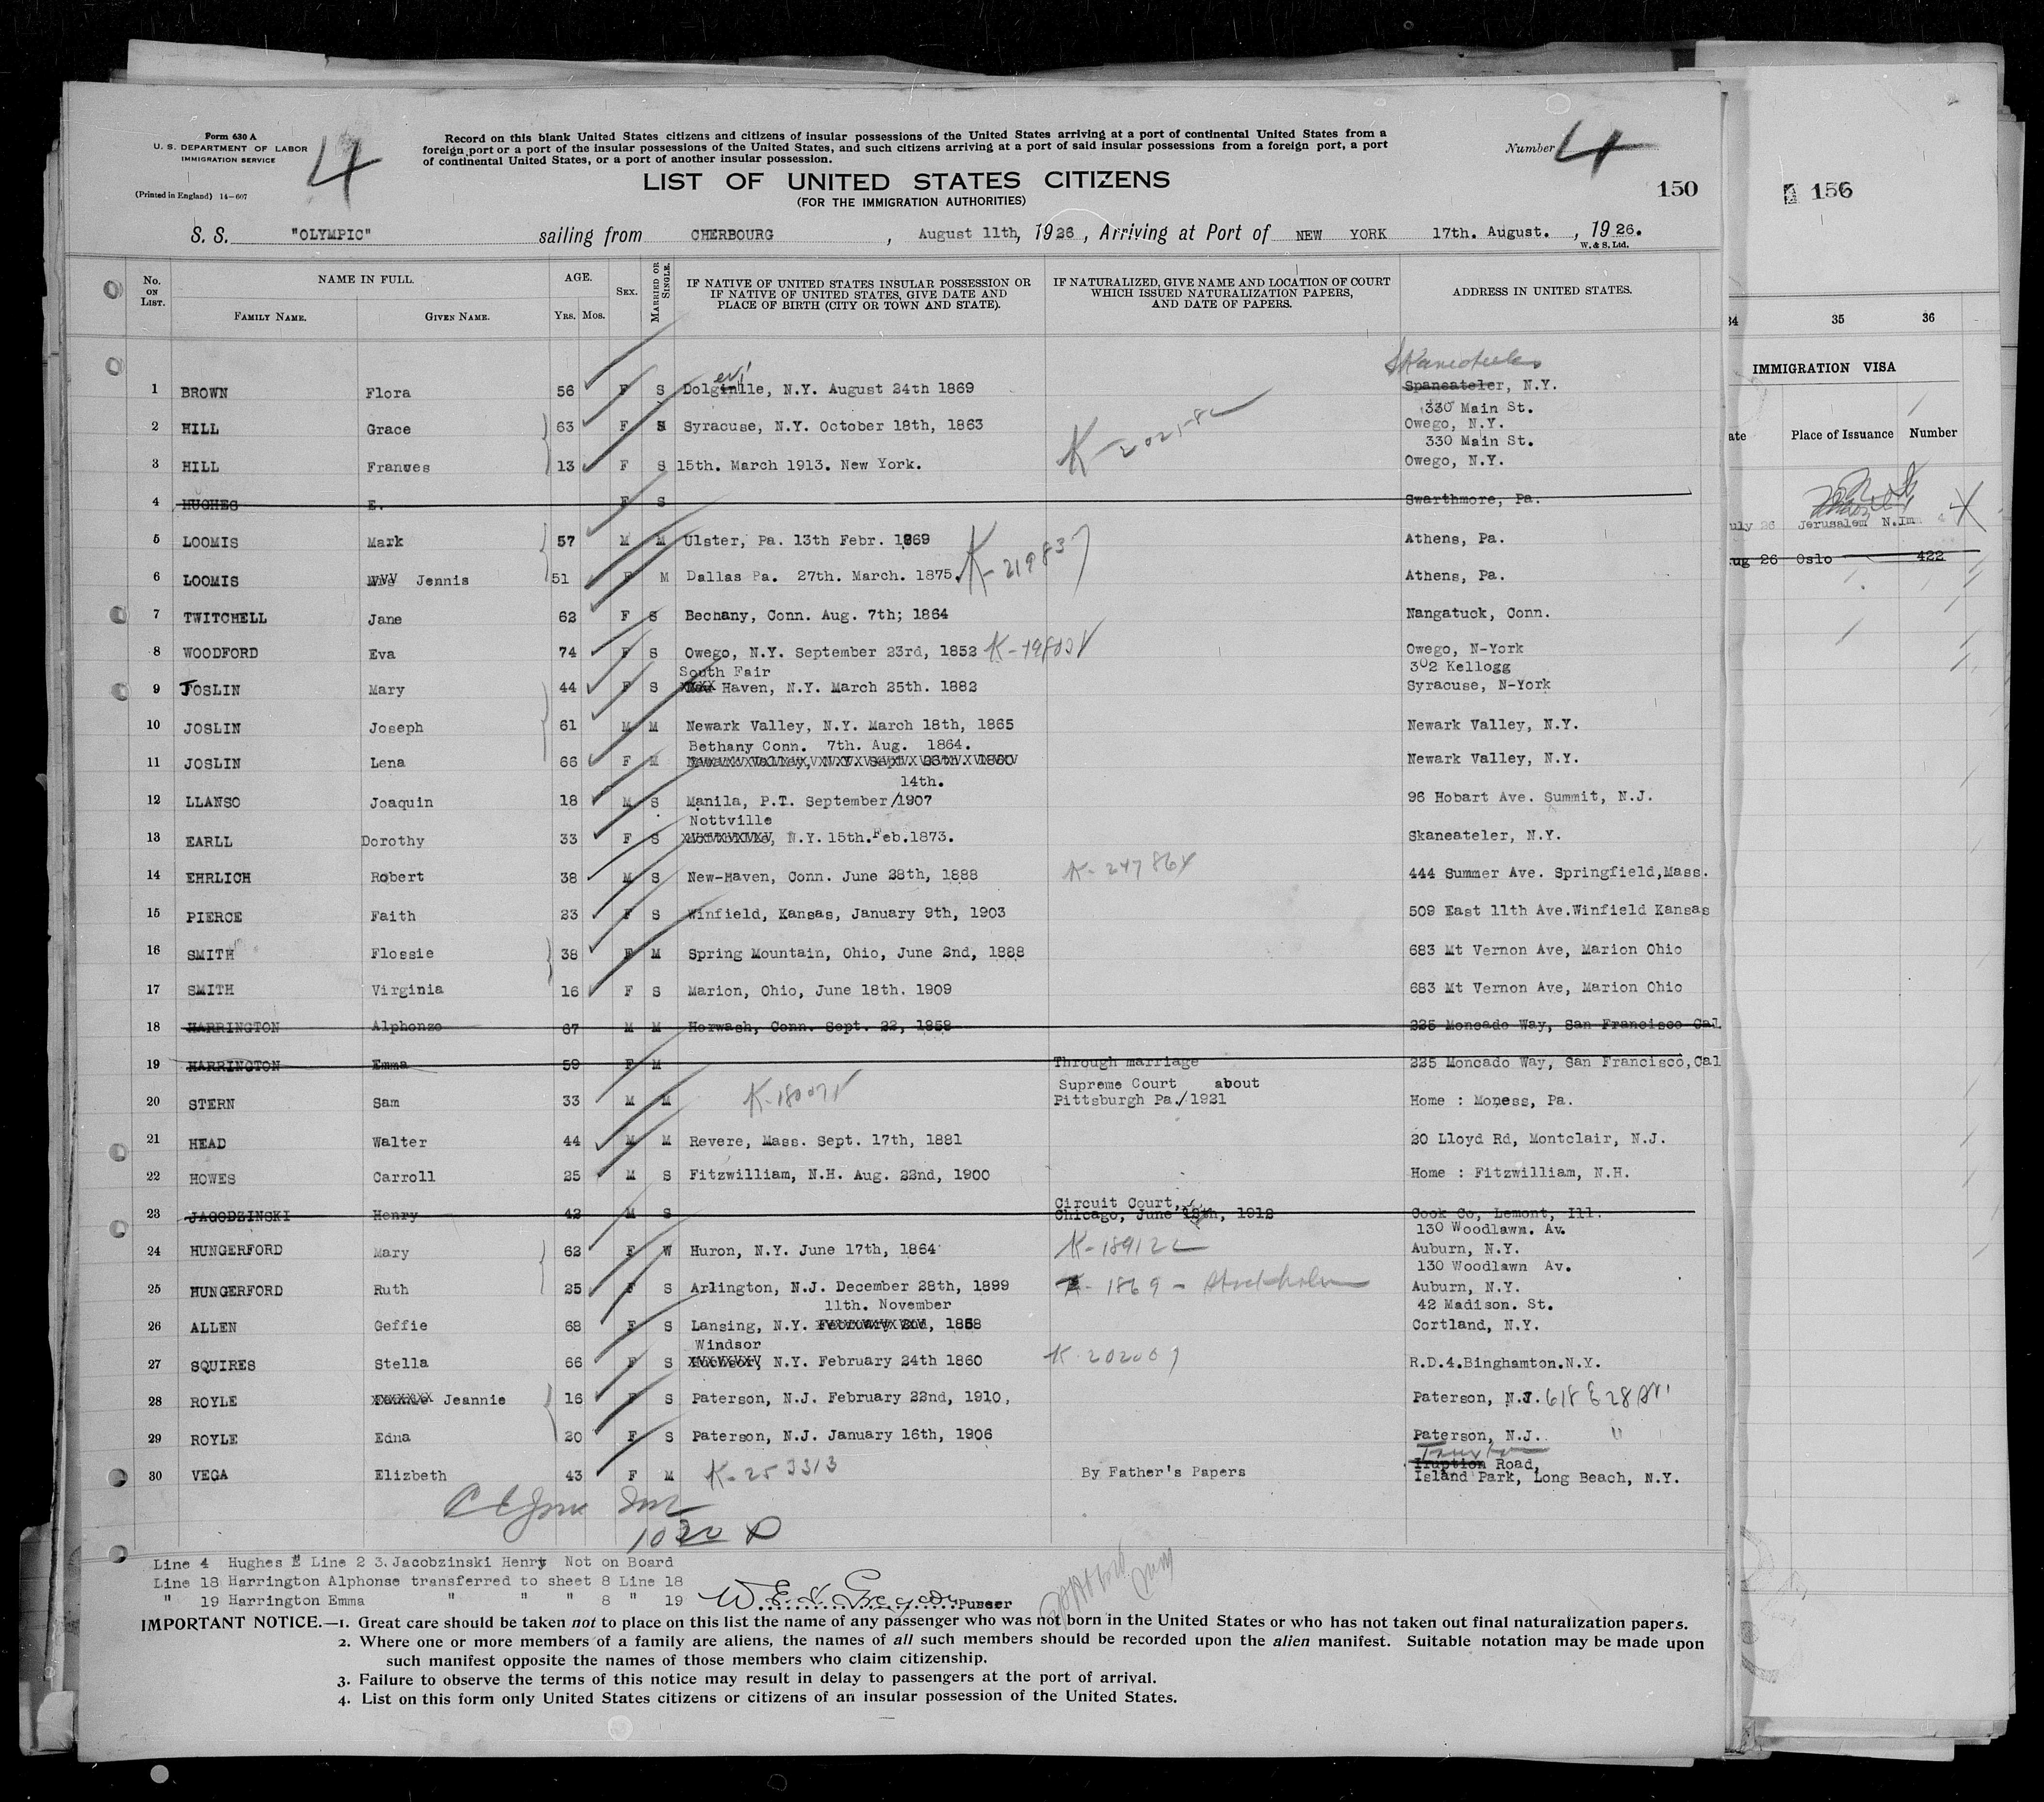 Form 630 A
U. S. DEPARTMENT OF LABOR
IMMIGRATION SERVICE
(Printed in England) 14-607
4
Record on this blank United States citizens and citizens of insular possessions of the United States arriving at a port of continental United States from a
foreign port or a port of the insular possessions of the United States, and such citizens arriving at a port of said insular possessions from a foreign port, a port
of continental United States, or a port of another insular possession.
Number 4
LIST OF UNITED STATES CITIZENS
(FOR THE IMMIGRATION AUTHORITIES)
150
S. S. "OLYMPIC" sailing from CHERBOURG, August 11th, 1926, Arriving at Port of NEW YORK 17th. August., 1926.
W. & S. Ltd.
No. ON LIST. NAME IN FULL. FAMILY NAME. GIVEN NAME. AGE. Yrs. Mos. SEX. MARRIED OR SINGLE. IF NATIVE OF UNITED STATES INSULAR POSSESSION OR IF NATIVE OF UNITED STATES, GIVE DATE AND PLACE OF BIRTH (CITY OR TOWN AND STATE). IF NATURALIZED, GIVE NAME AND LOCATION OF COURT WHICH ISSUED NATURALIZATION PAPERS, AND DATE OF PAPERS. ADDRESS IN UNITED STATES.
Skaneateles
1 BROWN Flora 56 F S Dolginlle, N.Y. August 24th 1869 Spaneateler, N.Y.
330 Main St.
2 HILL Grace 63 F Syracuse, N.Y. October 18th, 1863 Owego, N.Y.
330 Main St.
3 HILL Franwes 13 F S 15th. March 1913. New York. Owego, N.Y.
4 HUGHES E. F S Swarthmore, Pa.
5 LOOMIS Mark 57 M M Ulster, Pa. 13th Febr. 1869 Athens, Pa.
6 LOOMIS Jennis 51 F M Dallas Pa. 27th. March. 1875. K-219837 Athens, Pa.
7 TWITCHELL Jane 62 F S Bechany, Conn. Aug. 7th; 1864 Nangatuck, Conn.
8 WOODFORD Eva 74 F S Owego, N.Y. September 23rd, 1852 Owego, N-York
South Fair 302 Kellogg
9 JOSLIN Mary 44 F S Haven, N.Y. March 25th. 1882 Syracuse, N-York
10 JOSLIN Joseph 61 M M Newark Valley, N.Y. March 18th, 1865 Newark Valley, N.Y.
Bethany Conn. 7th. Aug. 1864.
11 JOSLIN Lena 66 F M Newark Valley, N.Y. Newark Valley, N.Y.
14th.
12 LLANSO Joaquin 18 M S Manila, P.T. September/1907 96 Hobart Ave. Summit, N.J.
Nottville
13 EARLL Dorothy 33 F S N.Y. 15th. Feb.1873. Skaneateler, N.Y.
14 EHRLICH Robert 38 M S New-Haven, Conn. June 28th, 1888 444 Summer Ave. Springfield,Mass.
15 PIERCE Faith 23 F S Winfield, Kansas, January 9th, 1903 509 East 11th Ave.Winfield Kansas
16 SMITH Flossie 38 F M Spring Mountain, Ohio, June 2nd, 1888 683 Mt Vernon Ave, Marion Ohio
17 SMITH Virginia 16 F S Marion, Ohio, June 18th. 1909 683 Mt Vernon Ave, Marion Ohio
18 HARRINGTON Alphonzo 67 M M Horwash, Conn. Sept. 22, 1858 225 Moncado Way, San Francisco Cal
19 HARRINGTON Emma 59 F M Through marriage 225 Moncado Way, San Francisco,Cal
Supreme Court about
20 STERN Sam 33 M M Pittsburgh Pa./1921 Home : Moness, Pa.
21 HEAD Walter 44 M M Revere, Mass. Sept. 17th, 1881 20 Lloyd Rd, Montclair, N.J.
22 HOWES Carroll 25 M S Fitzwilliam, N.H. Aug. 22nd, 1900 Home : Fitzwilliam, N.H.
Circuit Court,
23 JAGODZINSKI Henry 42 M S Chicago, June 1912 Cook Co, Lemont, Ill.
130 Woodlawn. Av.
24 HUNGERFORD Mary 62 F W Huron, N.Y. June 17th, 1864 Auburn, N.Y.
130 Woodlawn Av.
25 HUNGERFORD Ruth 25 F S Arlington, N.J. December 28th, 1899 1869 - Stockholm Auburn, N.Y.
11th. November 42 Madison. St.
26 ALLEN Geffie 68 F S Lansing, N.Y. 1858 Cortland, N.Y.
Windsor
27 SQUIRES Stella 66 F S N.Y. February 24th 1860 R.D.4.Binghamton.N.Y.
28 ROYLE Jeannie 16 F S Paterson, N.J. February 22nd, 1910, Paterson, N.J. 618 E 28
29 ROYLE Edna 20 F S Paterson, N.J. January 16th, 1906 Paterson, N.J. "
30 VEGA Elizbeth 43 F M K-253313 By Father's Papers Iruption Road,
Island Park, Long Beach, N.Y.
Line 4 Hughes E Line 2 3. Jacobzinski Henry Not on Board
Line 18 Harrington Alphonse transferred to sheet 8 Line 18
" 19 Harrington Emma " " " 8 " 19
Purser
IMPORTANT NOTICE.—1. Great care should be taken not to place on this list the name of any passenger who was not born in the United States or who has not taken out final naturalization papers.
2. Where one or more members of a family are aliens, the names of all such members should be recorded upon the alien manifest. Suitable notation may be made upon
such manifest opposite the names of those members who claim citizenship.
3. Failure to observe the terms of this notice may result in delay to passengers at the port of arrival.
4. List on this form only United States citizens or citizens of an insular possession of the United States.
156
34 35 36
IMMIGRATION VISA
ate Place of Issuance Number
uly 26 Jerusalem N.Imm 4
ug 26 Oslo 422